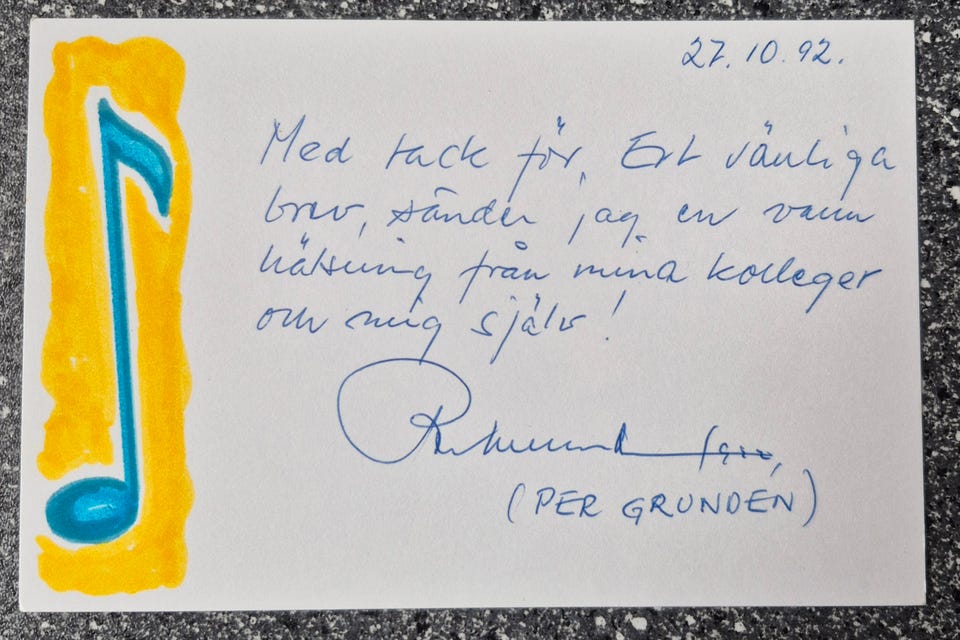 27.10.92.
Med tack för, Ert vänliga
brev, sänder jag en varm
hälsning från mina kolleger
och mig själv!
(PER GRUNDEN)